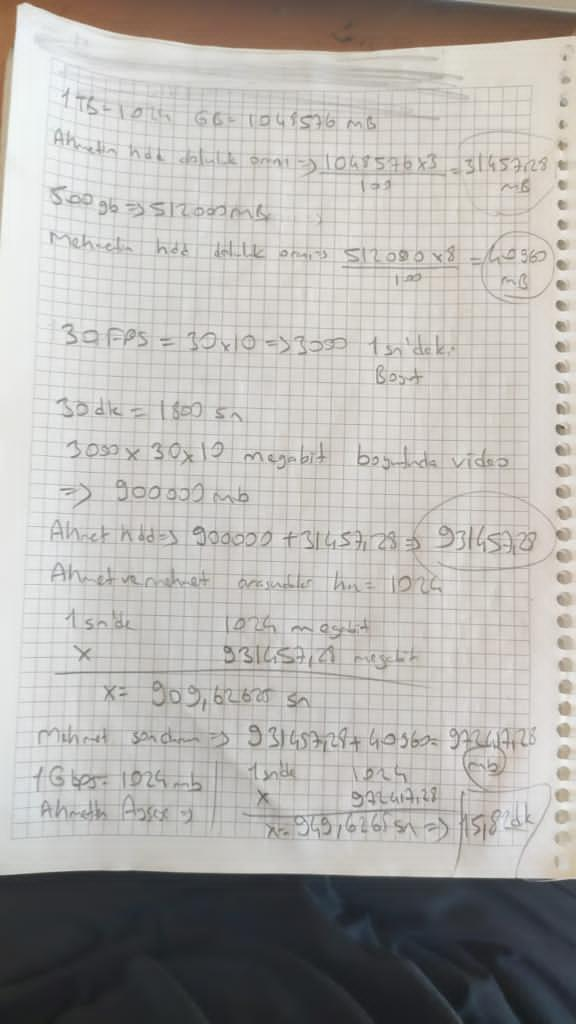 1TB = 1024 GB = 1048576 mB
Ahmetin hdd doluluk oranı => 1048576x3 / 100 = 31457,28 mB
500gb => 512000mB
Mehmetin hdd dolulk oranı => 512000x8 / 100 = 40960 mB
30FPS = 30x10 => 3000 1 sn'dek. Boyut
30dk = 1800 sn
3000x30x10 megabit boyutunda video
=> 900000mb
Ahmet hdd=> 900000+31457,28=> 931457,28
Ahmet ve mehmet hız = 1024
1 sn'de 1024 megabit
x 931457,28 megabit
x= 909,62625 sn
Mehmet => 931457,28+40960= 972417,28 mb
1Gbps = 1024mb
Ahmetin =>
1 snde 1024
x 972417,28
x= 949,6265 sn => 15,82dk